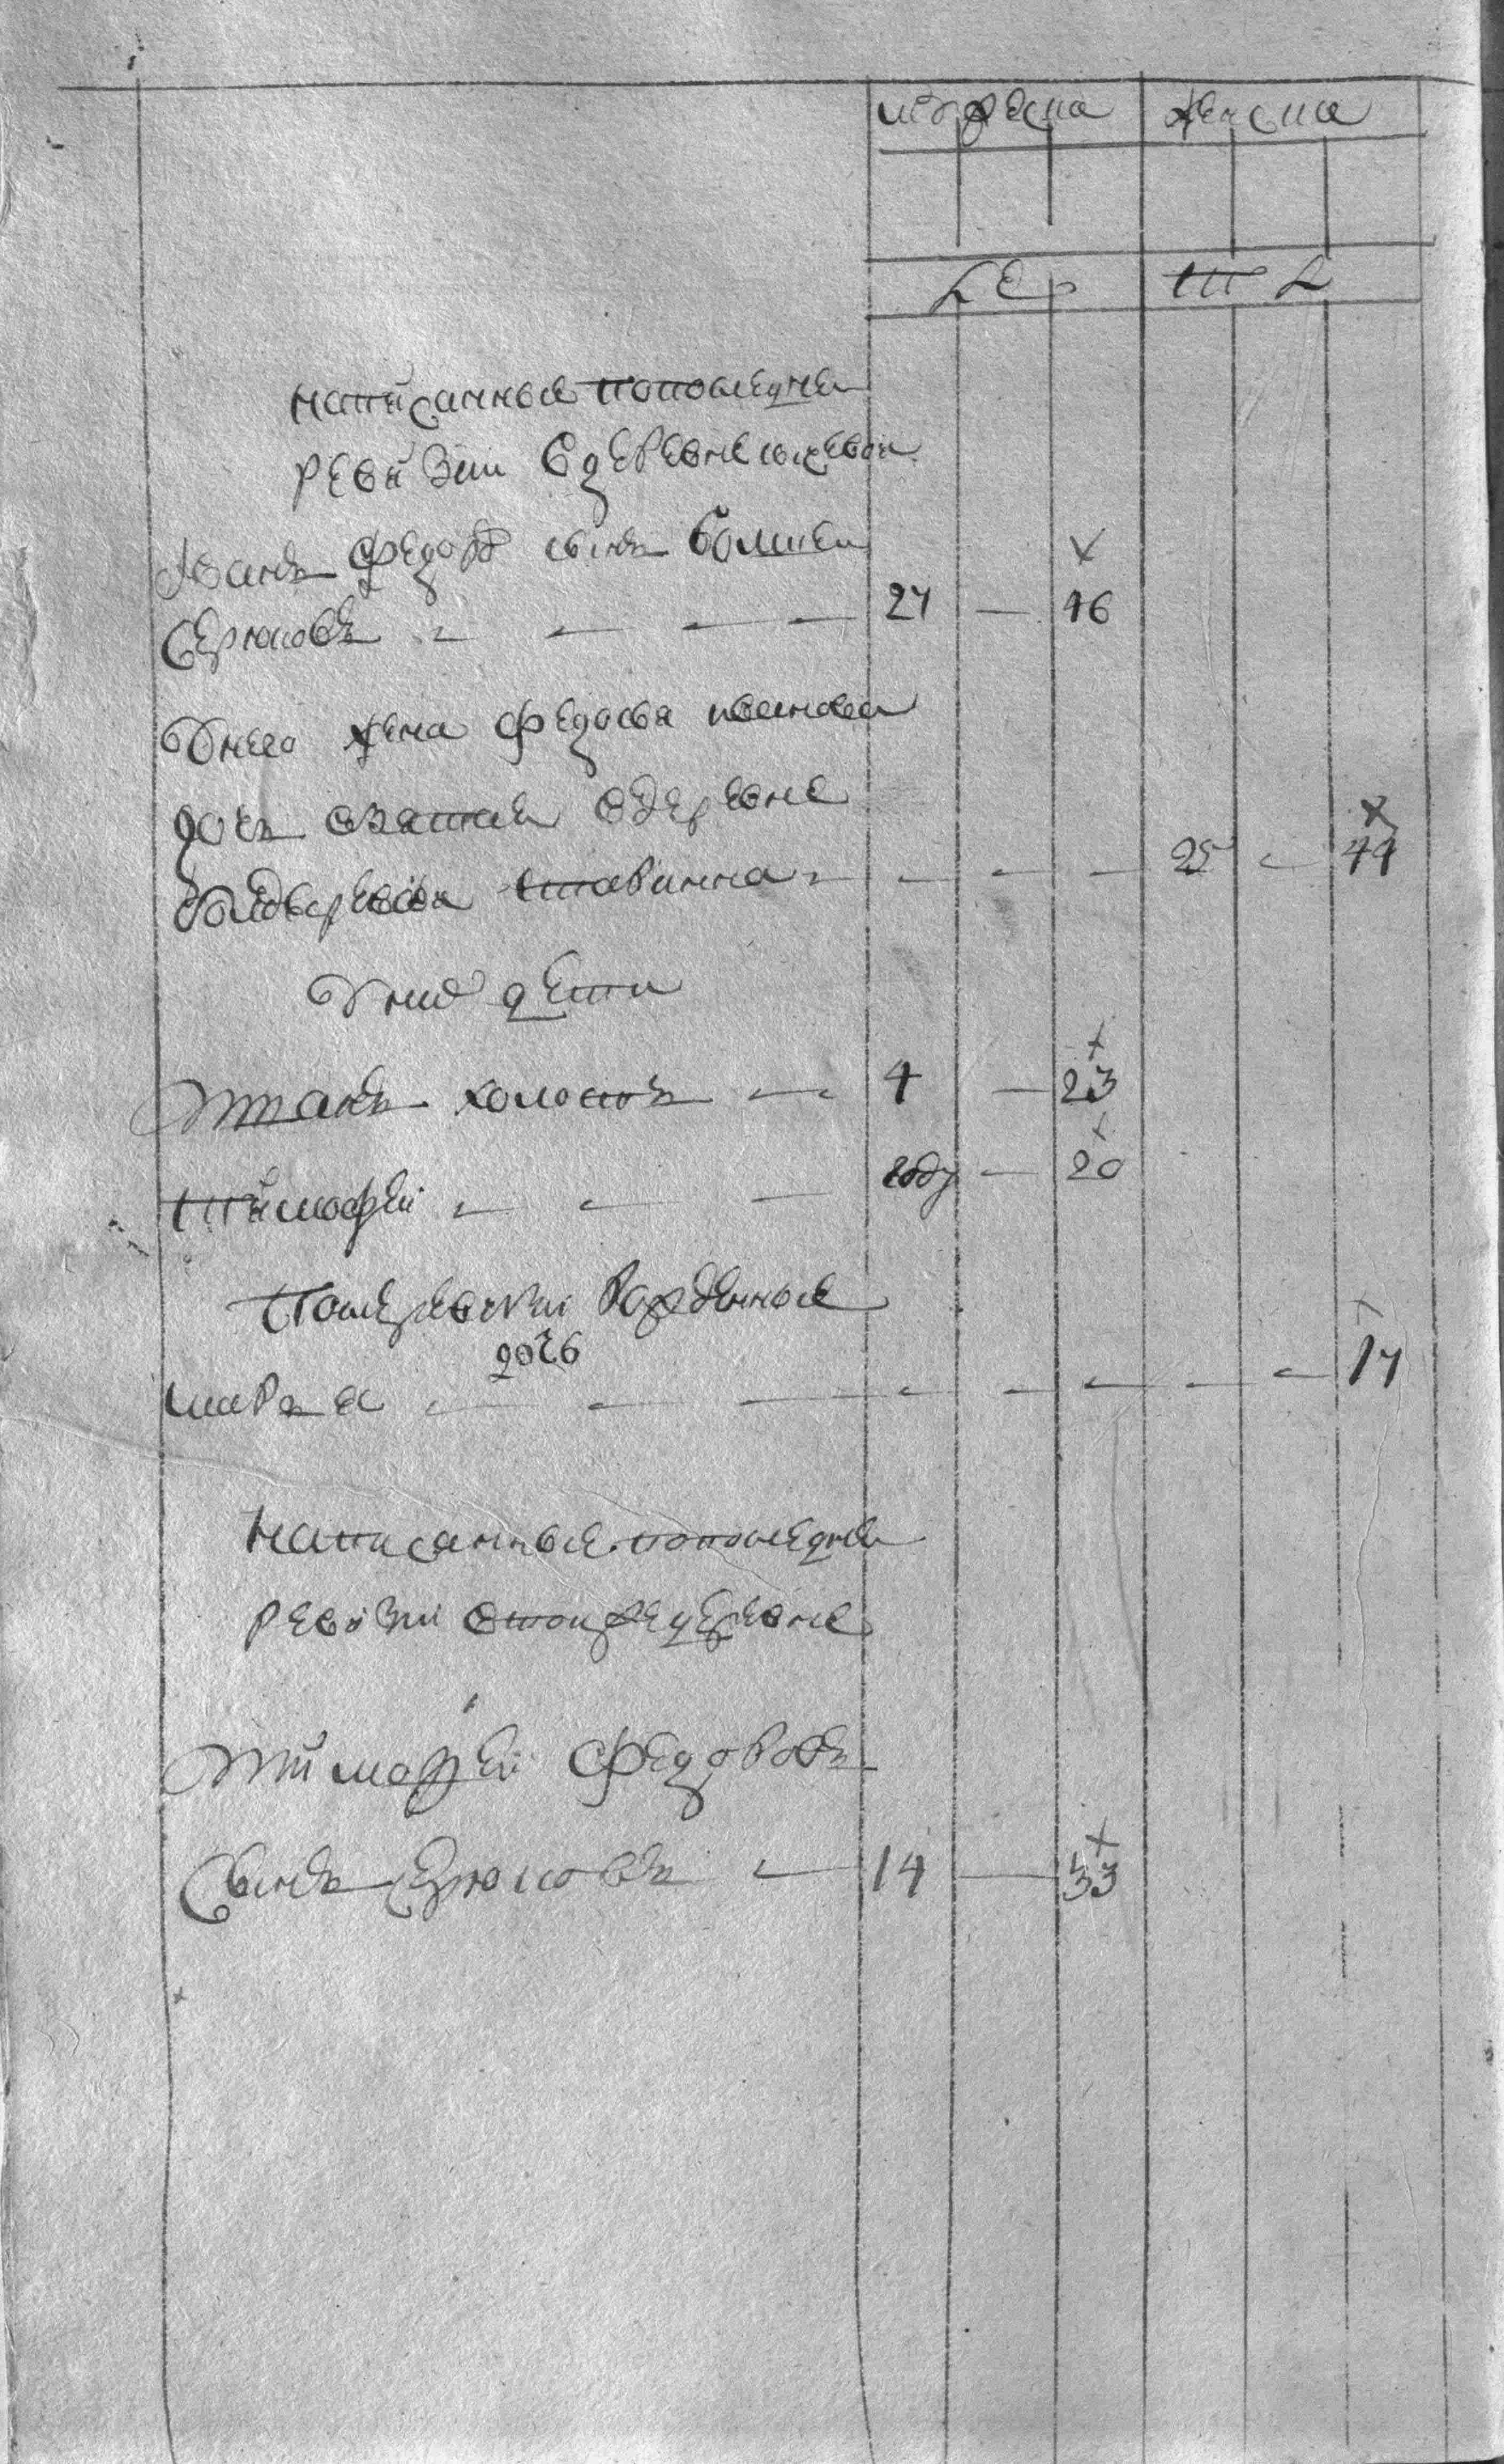 мужеска женска
написанные попоследнеи
ревизии вдеревне
Иванъ Федоровъ сынъ болшеи
Серюковъ 27 — 46
Унего жена Федосья иванова
дочь взятая вдеревне
старинная 25 — 44
Уних дети
Степанъ холостъ 4 — 23
Тимофеи году — 20
Послеревизии рожденные
дочь
марья 17
Написанные попоследнеи
ревизии втоиже деревне
Тимофеи Федоровъ
Сынъ Серюковъ 14 — 33